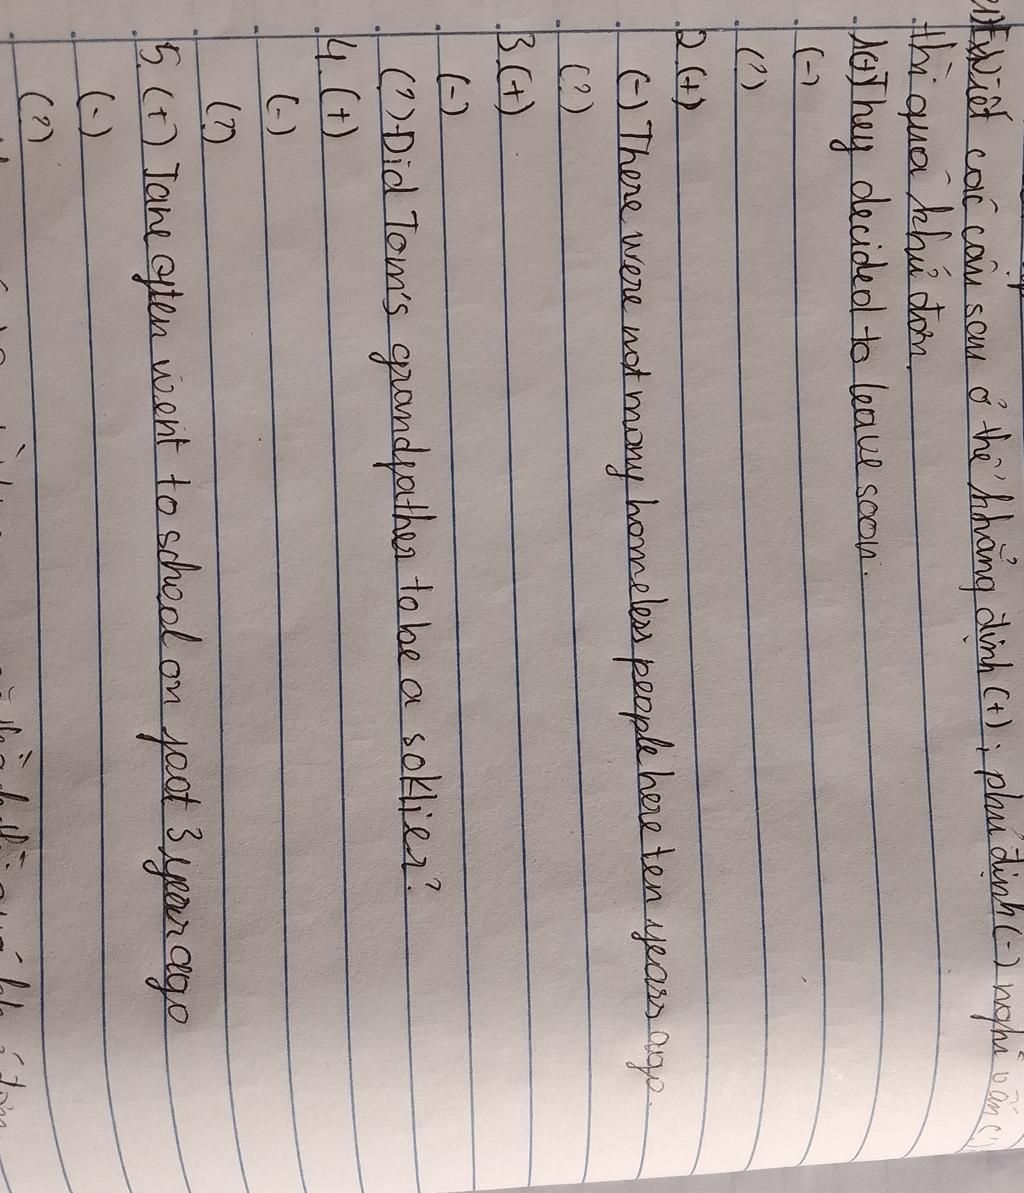 Viết các câu sau ở thể khẳng định (+); phủ định (-) nghi vấn (?)
thì quá khứ đơn.
1.(+) They decided to leave soon.
(-)
(?)
2.(+)
(-) There were not many homeless people here ten years ago.
(?)
3.(+)
(-)
(?) Did Tom's grandfather to be a soklier?
4.(+)
(-)
(?)
5.(+) Jane often went to school on foot 3 year ago
(-)
(?)